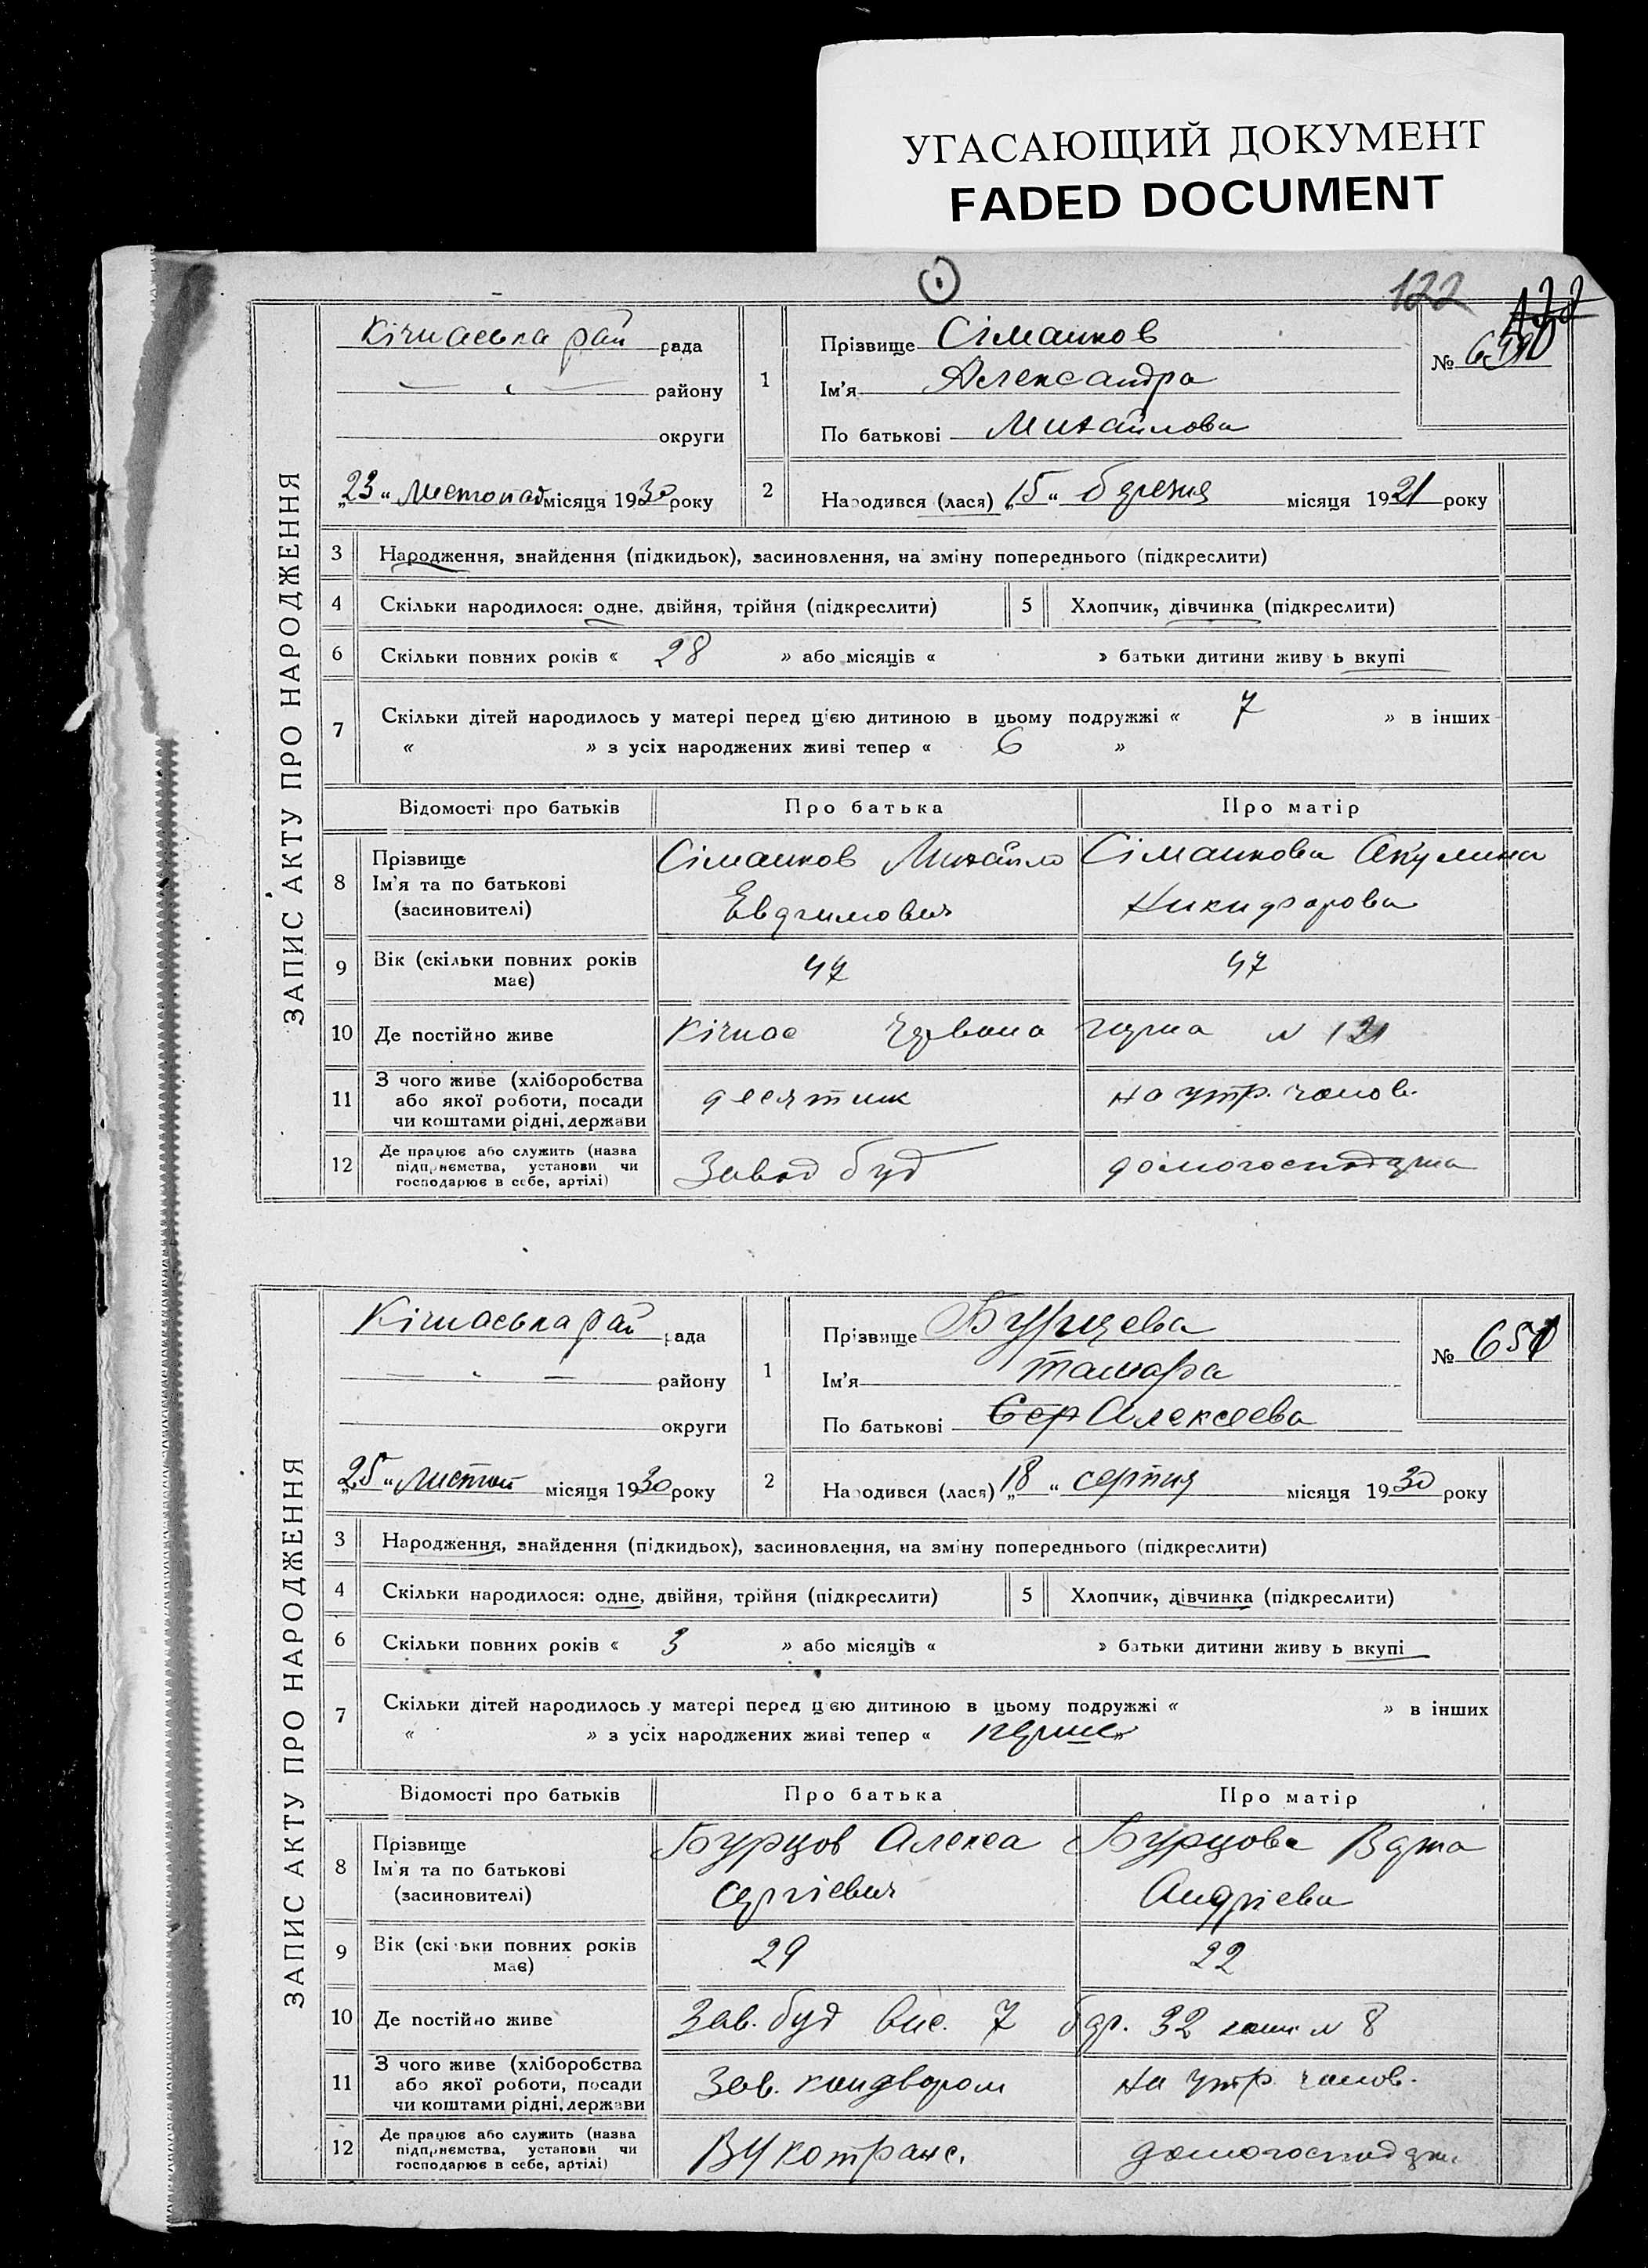 УГАСАЮЩИЙ ДОКУМЕНТ
FADED DOCUMENT
122
ЗАПИС АКТУ ПРО НАРОДЖЕННЯ
Кічкаська рай рада
— „ — району
округи
„23“ Листопад місяця 1930 року
1
Прізвище Сімаиков
Ім'я Александра
По батькові Михайлова
№
2
Народився (лася) „15“ березня місяця 1921 року
3 Народження, знайдення (підкидьок), засиновлення, на зміну попереднього (підкреслити)
4 Скільки народилося: одне, двійня, трійня (підкреслити) 5 Хлопчик, дівчинка (підкреслити)
6 Скільки повних років « 28 » або місяців « » батьки дитини живу ь вкупі
7 Скільки дітей народилось у матері перед цією дитиною в цьому подружжі « 7 » в інших
« » з усіх народжених живі тепер « 6 »
Відомості про батьків Про батька Про матір
8 Прізвище
Ім'я та по батькові
(засновителі)
Сімаиков Михайло
Евдчимович
Сімаикова Акулина
Никифорова
9 Вік (скільки повних років
має)
47 47
10 Де постійно живе Кічкас Червона N 121
11 З чого живе (хліборобства
або якої роботи, посади
чи коштами рідні, держави
десятник на утр. чолов.
12 Де працює або служить (назва
підприємства, установи чи
господарює в себе, артілі)
Завод буд домогосподарка
ЗАПИС АКТУ ПРО НАРОДЖЕННЯ
Кічкаська рай рада
— „ — району
округи
„25“ Листоп місяця 1930 року
1
Прізвище Бурцева
Ім'я Тамара
По батькові Сер Алексеева
№ 651
2
Народився (лася) „18“ серпня місяця 1930 року
3 Народження, знайдення (підкидьок), засиновлення, на зміну попереднього (підкреслити)
4 Скільки народилося: одне, двійня, трійня (підкреслити) 5 Хлопчик, дівчинка (підкреслити)
6 Скільки повних років « 3 » або місяців « » батьки дитини живу ь вкупі
7 Скільки дітей народилось у матері перед цією дитиною в цьому подружжі « » в інших
« » з усіх народжених живі тепер « перше »
Відомості про батьків Про батька Про матір
8 Прізвище
Ім'я та по батькові
(засиновителі)
Бурцов Алекса
Сергіевич
Бурцова Вера
Андріева
9 Вік (скільки повних років
має)
29 22
10 Де постійно живе Зав. буд вис. 7 бар. 32 кімн N 8
11 З чого живе (хліборобства
або якої роботи, посади
чи коштами рідні, держави
Зав. кондвором на утр. чолов.
12 Де працює або служить (назва
підприємства, установи чи
господарює в себе, артілі)
ВУкотранс. домогосподар.